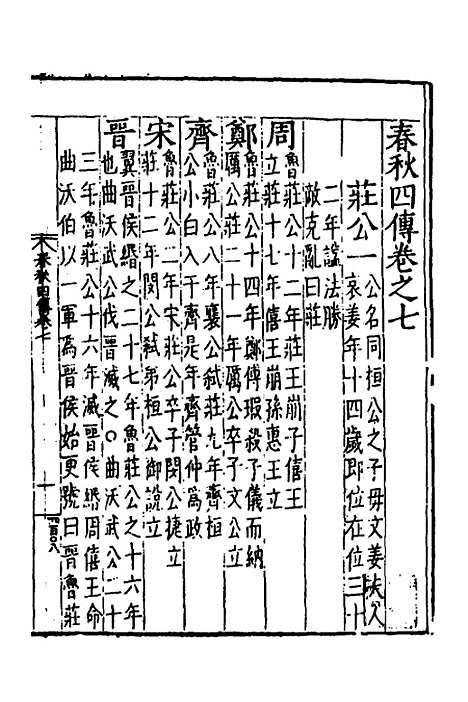 春秋四傳卷之七
莊公一
公名同桓公之子母文姜夫人
哀姜年十四歲即位在位三十
二年謚法勝
敵克亂曰莊
周
魯莊公十二年莊王崩子僖王
立莊十七年僖王崩孫惠王立
鄭
魯莊公十四年鄭傅瑕殺子儀而納
厲公莊二十一年厲公卒子文公立
齊
魯莊公八年襄公弑莊九年齊桓
公小白入于齊是年齊管仲爲政
宋
魯莊公二年宋莊公卒子閔公捷立
莊十二年閔公弑弟桓公御說立
晉
翼晉侯緡之二十七年魯莊公之十六年
也曲沃武公伐晉滅之○曲沃武公二十
三年魯莊公十六年滅晉侯緡周僖王命
曲沃伯以一軍爲晉侯始更號曰晉魯莊
春秋四傳卷七